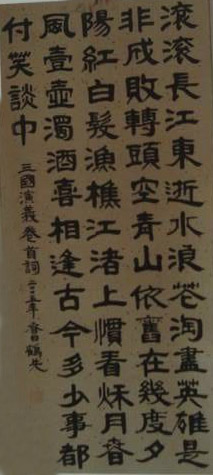 滾滾長江東逝水浪花淘盡英雄是
非成敗轉頭空青山依舊在幾度夕
陽紅白髮漁樵江渚上慣看秋月春
風壹壺濁酒喜相逢古今多少事都
付笑談中
三國演義卷首詞